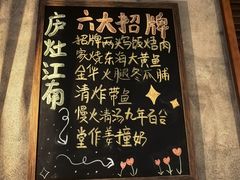 庐灶江南
六大招牌
招牌两鸡饭烤肉
家烧东海大黄鱼
金华火腿冬瓜脯
清炸带鱼
慢火清汤九年百合
堂作姜撞奶